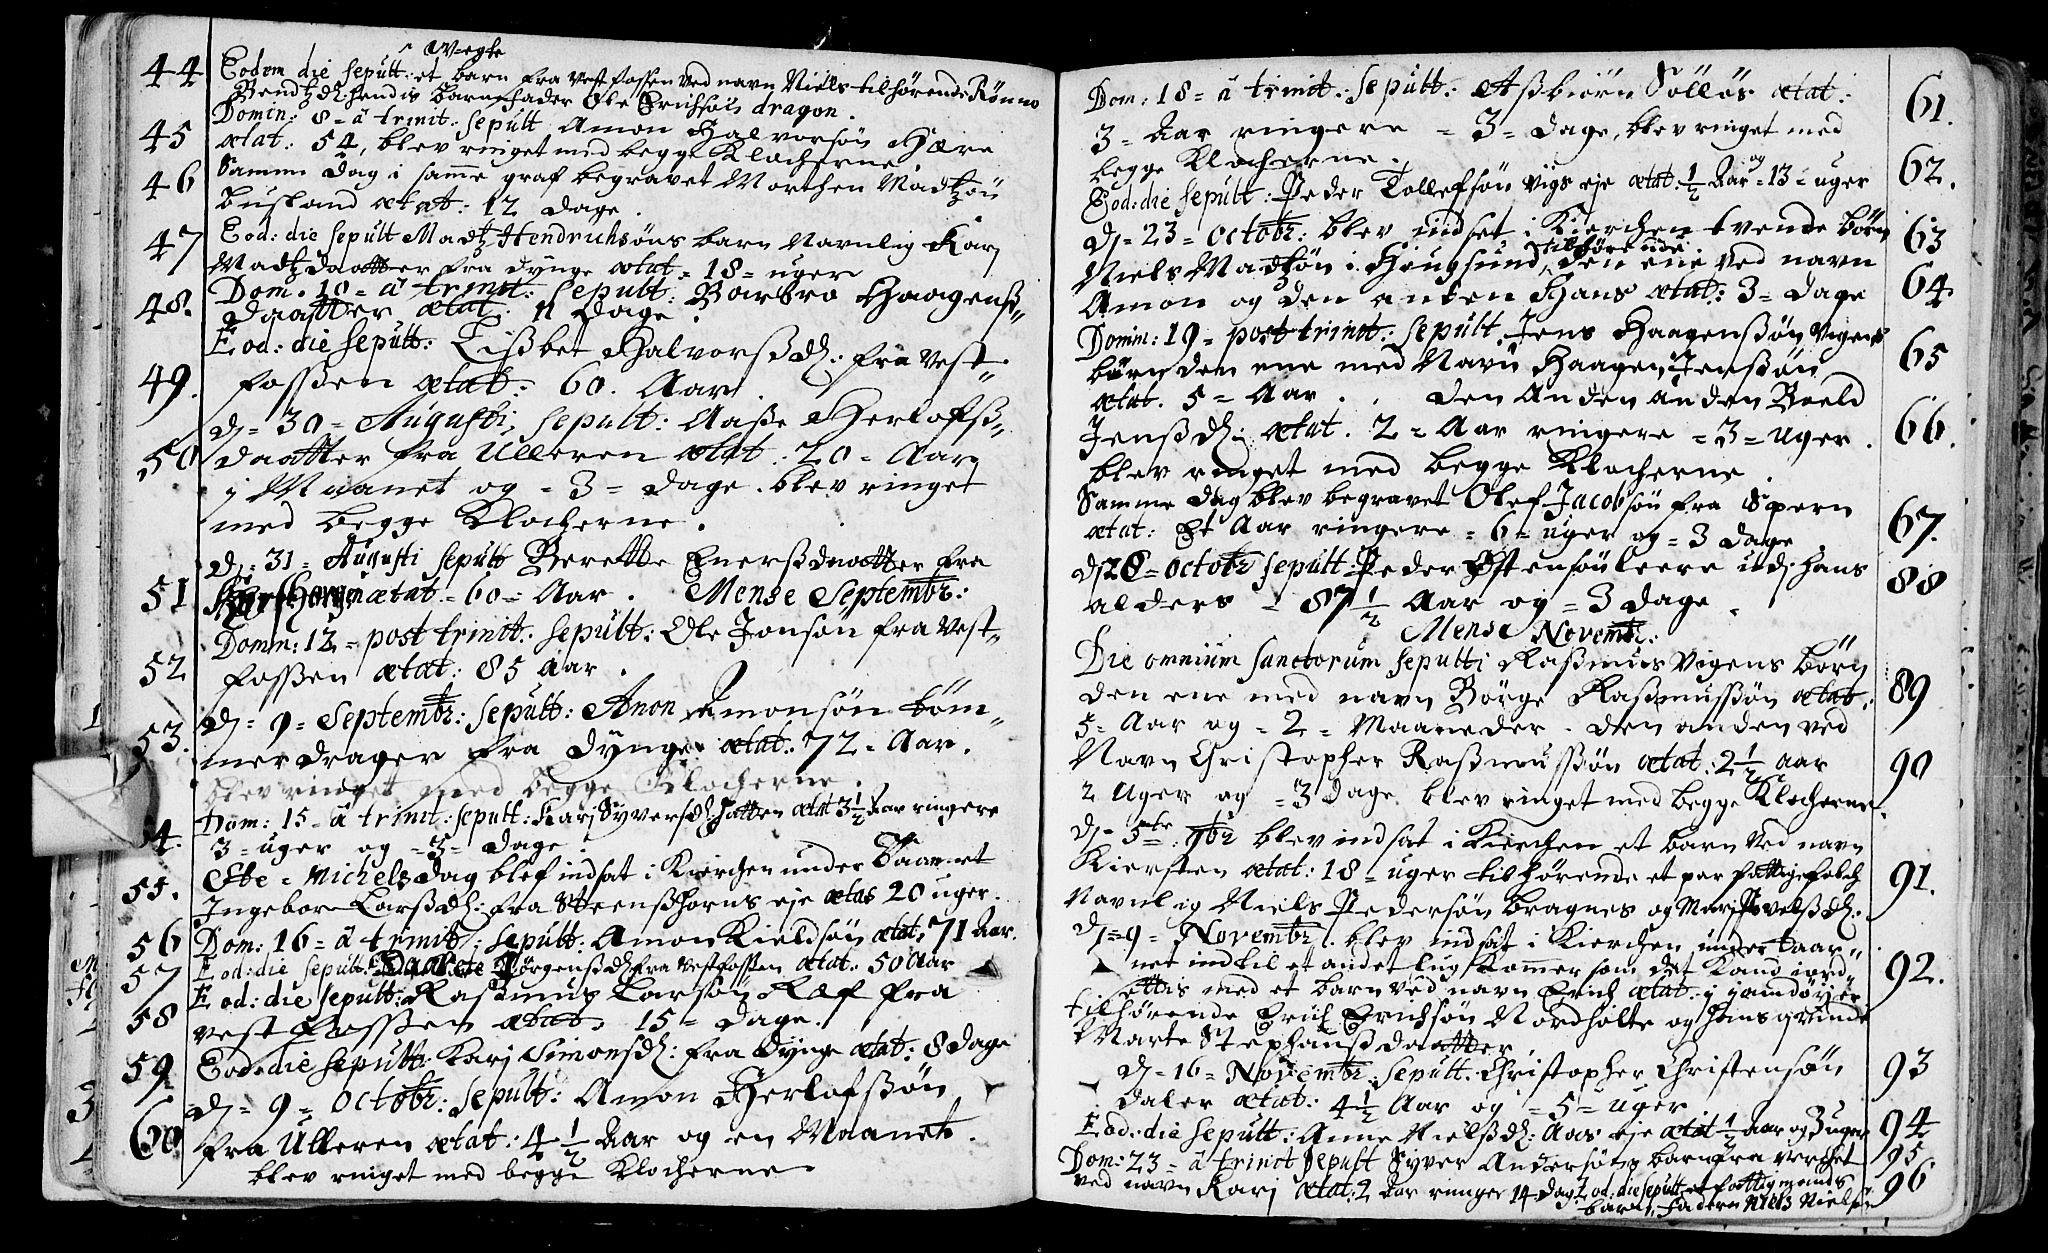 44 Eodem die sepult: et uægte barn fra Vestfossen ved navn Niels tilhørende Rønno
Bendtzd: hendis barnefader Ole Erichsøn dragon.
Domin: 8 = â trinit: sepult Amon Halvorsøn Hære
45 ætat: 54, blev ringet med begge Klocherne.
46 Samme dag i samme graf begravet Morthen Madtzøn
Busland ætat: 12 dage.
47 Eod: die sepult Madtz Hendrichsøns barn Navnlig Karj
Madtzdaatter fra Dynge ætat = 18 = uger
48. Dom. 10 = â trinit: sepult: Barbro Haagenß
daatter ætat. 11 dage.
Eod: die sepult: Lisbet Halvorßd: fra Vest-
49. fossen ætat: 60. Aar.
d = 30 = Augusti, sepult: Aaße Herlofß
50 daatter fra Ulleren ætat: 20 = Aar
j Maanet og = 3 = dage. blev ringet
med begge Klocherne.
d = 31 = Augusti sepult Berette Enerßdaatter fra
51 ætat = 60 = Aar. Mense Septembr:
Domin: 12 = post trinit: sepult: Ole Jonsøn fra Vest-
52 fossen ætat: 85 aar.
d = 9 = Septembr: sepult: Anon Amonsøn tøm-
53. merdrager fra Dynge ætat: 72 = Aar.
blev ringet med begge Klocherne.
Dom: 15 = â trinit: sepult: Karj Syversd: Hatten ætat 3 1/2 Aar ringere
54. 3 = uger og = 3 = dage.
55. Ste = Michels dag blef indsat i Kierchen under Taarnet
Ingebor Larßd: fra Steenßhorns eje ætas 20 uger.
56 Dom: 16 = â trinit: sepult: Amon Kieldsøn ætat. 71 Aar.
57 Eod: die sepult: Jørgensd fra Vestfossen ætat: 50 Aar
58 Eod: die sepult: Rasmus Larsøn Ræf fra
Vestfossen ætat. 15 = dage.
59. Eod: die sepult: Karj Simonsd: fra Dynge ætat: 8 dage
d = 9 = Octobr: sepult: Amon Herlofßøn
60. fra Ulleren ætat: 4 1/2 Aar og en Maanet.
blev ringet med begge Klocherne
Dom: 18 = â trinit: sepult: Aßbiørn Sølløs ætat: 61.
3 = Aar ringere = 3 = dage, blev ringet med
begge Klocherne.
Eod: die sepult: Peder Tollefsøn Vigs eje ætat: 1/2 Aar og = 13 = uger 62.
d = 23 = Octobr: blev indset i Kierchen tvende børn 63
Niels Madtzøn i Hougsund tilhørende. den ene ved navn
Amon og den anten Hans ætat: 3 = dage 64
Domin: 19 = post trinit: sepult Jens Haagenßøn Vigens
børn den ene med Navn Haagen Jenssøn 65
ætat. 5 = Aar. . den Anden anden Boeld
Jenßd: ætat. 2 = Aar ringere = 3 = uger. 66.
blev ringet med begge Klocherne.
Samme dag blev begravet Olef Jacobsøn fra Spern
ætat: Et Aar ringere = 6 = uger og = 3 dage 67.
d 28 = octobr sepult: Peder Ostensøn Leere udj hans 88
alders = 87 1/2 Aar og = 3 dage.
Mense Novembr:
Die omnium sanctorum sepulti Raßmus Vigens børn
den ene med navn Børge Raßmusßøn ætat: 89
5 = Aar og = 2 = Maaneder. den anden ved
Navn Christopher Raßmusßøn ætat: 2 1/2 aar 90
2 Uger og = 3 dage. blev ringet med begge Klocherne.
d = 5te = 9br blev indsat i Kierchen et barn ved navn
Kiersten ætat: 18 = uger tilhørende et par fattige folch 91.
Navnlig Niels Pedersøn Bragnes og Marj Povelsd:
d = 9 = Novembr. blev indsat i Kierchen under taar-
net indtil et andet lug Kommer som det Kand iord-
ettis med et barn ved navn Erich ætat: j jamdøyjer 92.
tilhørende Erich Erichsøn Nordholte og Hans qvinde
Marte Stephansdaatter
d = 16 = Novembr. sepult. Christopher Christensøn 93
Daler ætat: 4 1/2 Aar og = 5 = uger
Eod: die sepult: Anne Nielßd: Aas eje ætat 1/2 Aar og 3 uger 94
Dom: 23 = â trinit sepult Syver Andersøns barn fra Verchet 95
ved navn Karj ætat: 2 Aar ringer 14 dag Eod: die sepult et fattig mands 96
barn, Faderen Niels Nielsøn